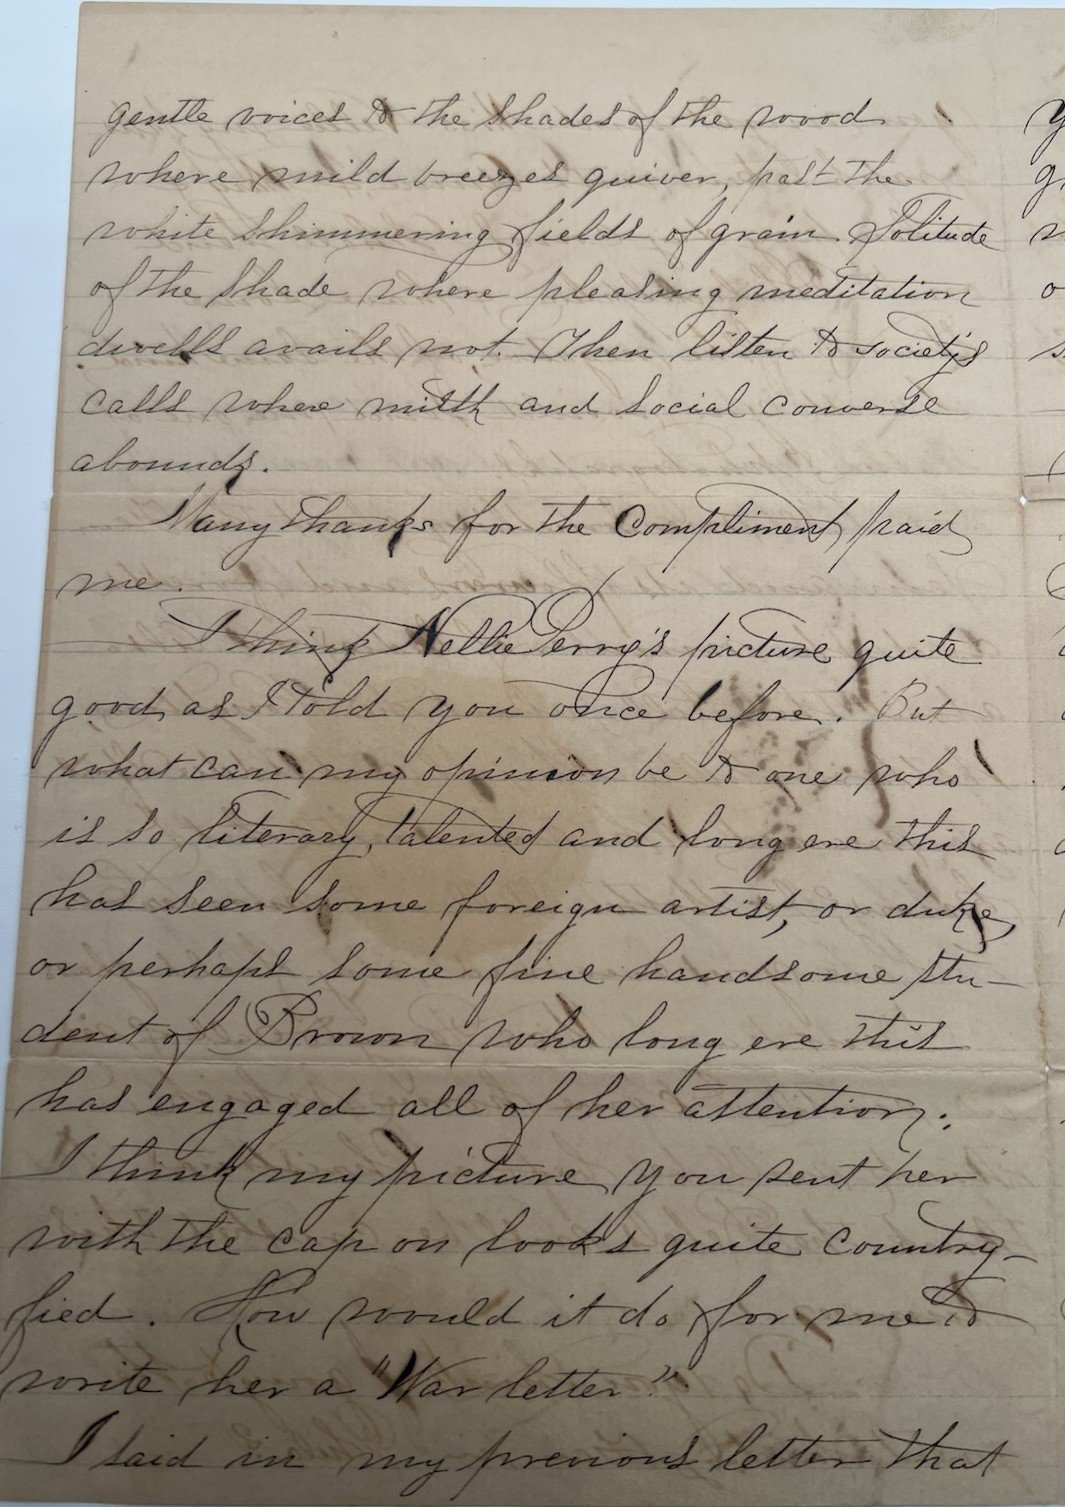 gentle voices to the shades of the wood
where mild breezes quiver, past the
white shimmering fields of grain. Solitude
of the shade where pleasing meditation
dwells avails not. Then listen to society's
calls where mirth and social converse
abounds.
Many thanks for the Compliment paid
me.
I think Nellie Perry's picture quite
good as I told you once before. But
what can my opinion be to one who
is so literary, talented and long ere this
has seen some foreign artist, or duke,
or perhaps some fine handsome stu-
dent of Brown who long ere this
has engaged all of her attention.
I think my picture you sent her
with the cap on looks quite country-
fied. How would it do for me to
write her a "War letter?"
I said in my previous letter that